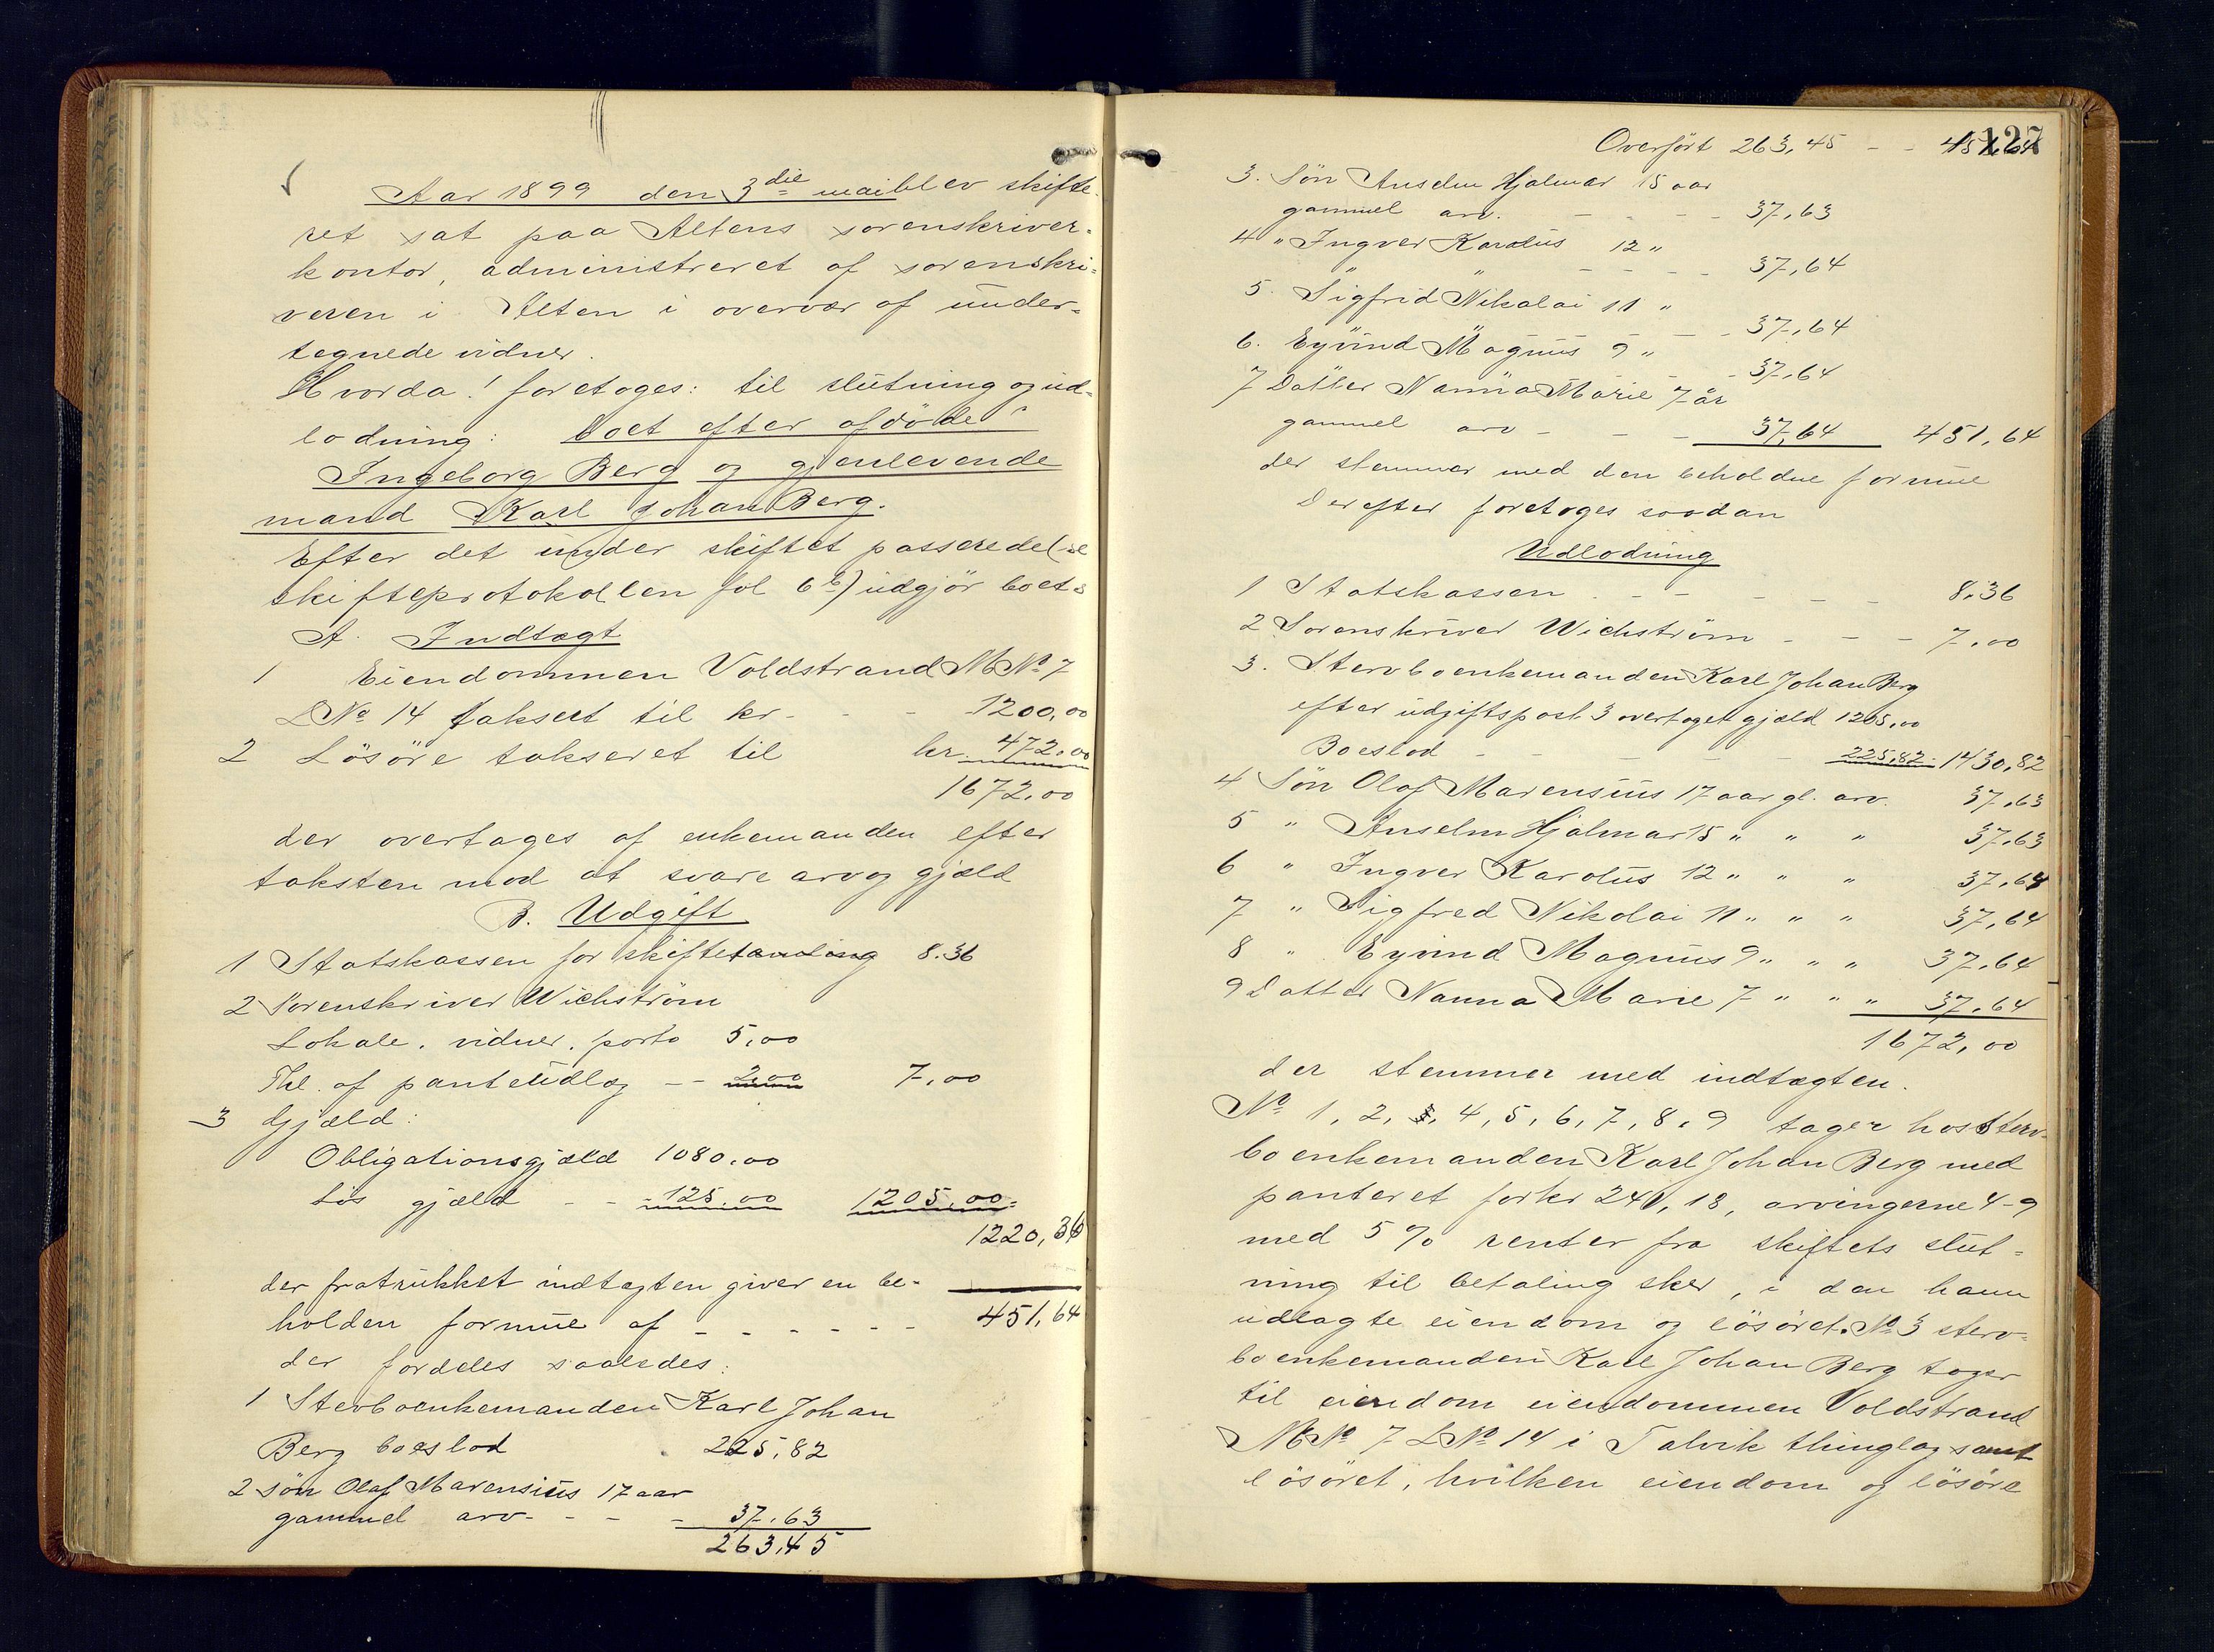 Aar 1899 den 3die mai blev skifte-
ret sat paa Altens sorenskriver-
kontor, administreret af sorenskri-
veren i Alten i overvær af under-
tegnede vidner.
Hvorda! foretoges: til slutning og ud-
lodning: boet efter afdøde
Ingeborg Berg og gjenlevende
mand Karl Johan Berg.
Efter det under skiftet passerede (se
skifteprotokollen fol 6b) udgjör boets
A. Indtægt
1 Eiendommen Voldstrand MNo 7
LNo 14 taksert til kr - - 1200,00
2 Lösöre takseret til kr 472.00
1672.00
der overtages af enkemanden efter
taksten mod at svare arv og gjæld
B. Udgift
1 Statskassen for skiftetamling 8.36
2 Sorenskriver Wichström
Lokale. vidner. porto 5,00
Thl. af panteudlæg -- 2,00 7,00
3 Gjæld:
Obligationsgjæld 1080.00
lös gjæld - - 125.00 1205.00
1220,36
der fratrukket indtægten giver en be-
holden formue af - - - - - - 451,64
der fordeles saaledes:
1 Stervboenkemanden Karl Johan
Berg boeslod 225,82
2 sön Olaf Marensius 17 aar
gammel arv - - - - 37.63
263,45
127
Overfört 263,45 - - 451,64
3. Sön Anselm Hjalmar 15 aar
gammel arv. - - - - 37,63
4 " Ingver Karolus 12 "
" " - - - - 37,64
5. Sigfrid Nikolai 11 "
" - - - 37,64
6. Eyvind Magnus 9 "
- - 37,64
7 Datter Nanna Marie 7 år
gammel arv - - - 37,64 451,64
der stemmer med den beholdne formue
Derefter foretoges saadan
Udlodning
1 Statskassen - - - - - - 8,36
2 Sorenskriver Wichström - - - 7,00
3. Stervboenkemanden Karl Johan Berg
efter udgiftspost 3 overtaget gjæld 1205,00
Boeslod - - - - 225,82 - 1430,82
4 Sön Olaf Marensius 17 aar gl. arv. 37,63
5 " Anselm Hjalmar 15 " " " 37,63
6 " Ingver Karolus 12 " " " 37,64
7 " Sigfred Nikolai 11 " " " 37,64
8 " Eyvind Magnus 9 " " " 37,64
9 Datter Nanna Marie 7 " " " 37,64
1672,00
der stemmer med indtægten.
No 1, 2, 3, 4, 5, 6, 7, 8, 9 tager hos sterv-
boenkemanden Karl Johan Berg med
panteret for kr 241,18, arvingerne 4-9
med 5 % renter fra skiftets slut-
ning til betaling sker, i den ham
udlagte eiendom og lösöret. No 3 sterv-
boenkemanden Karl Johan Berg tager
til eiendom eiendommen Voldstrand
MNo 7 LNo 14 i Talvik thinglag samt
lösöret, hvilken eiendom og lösöre